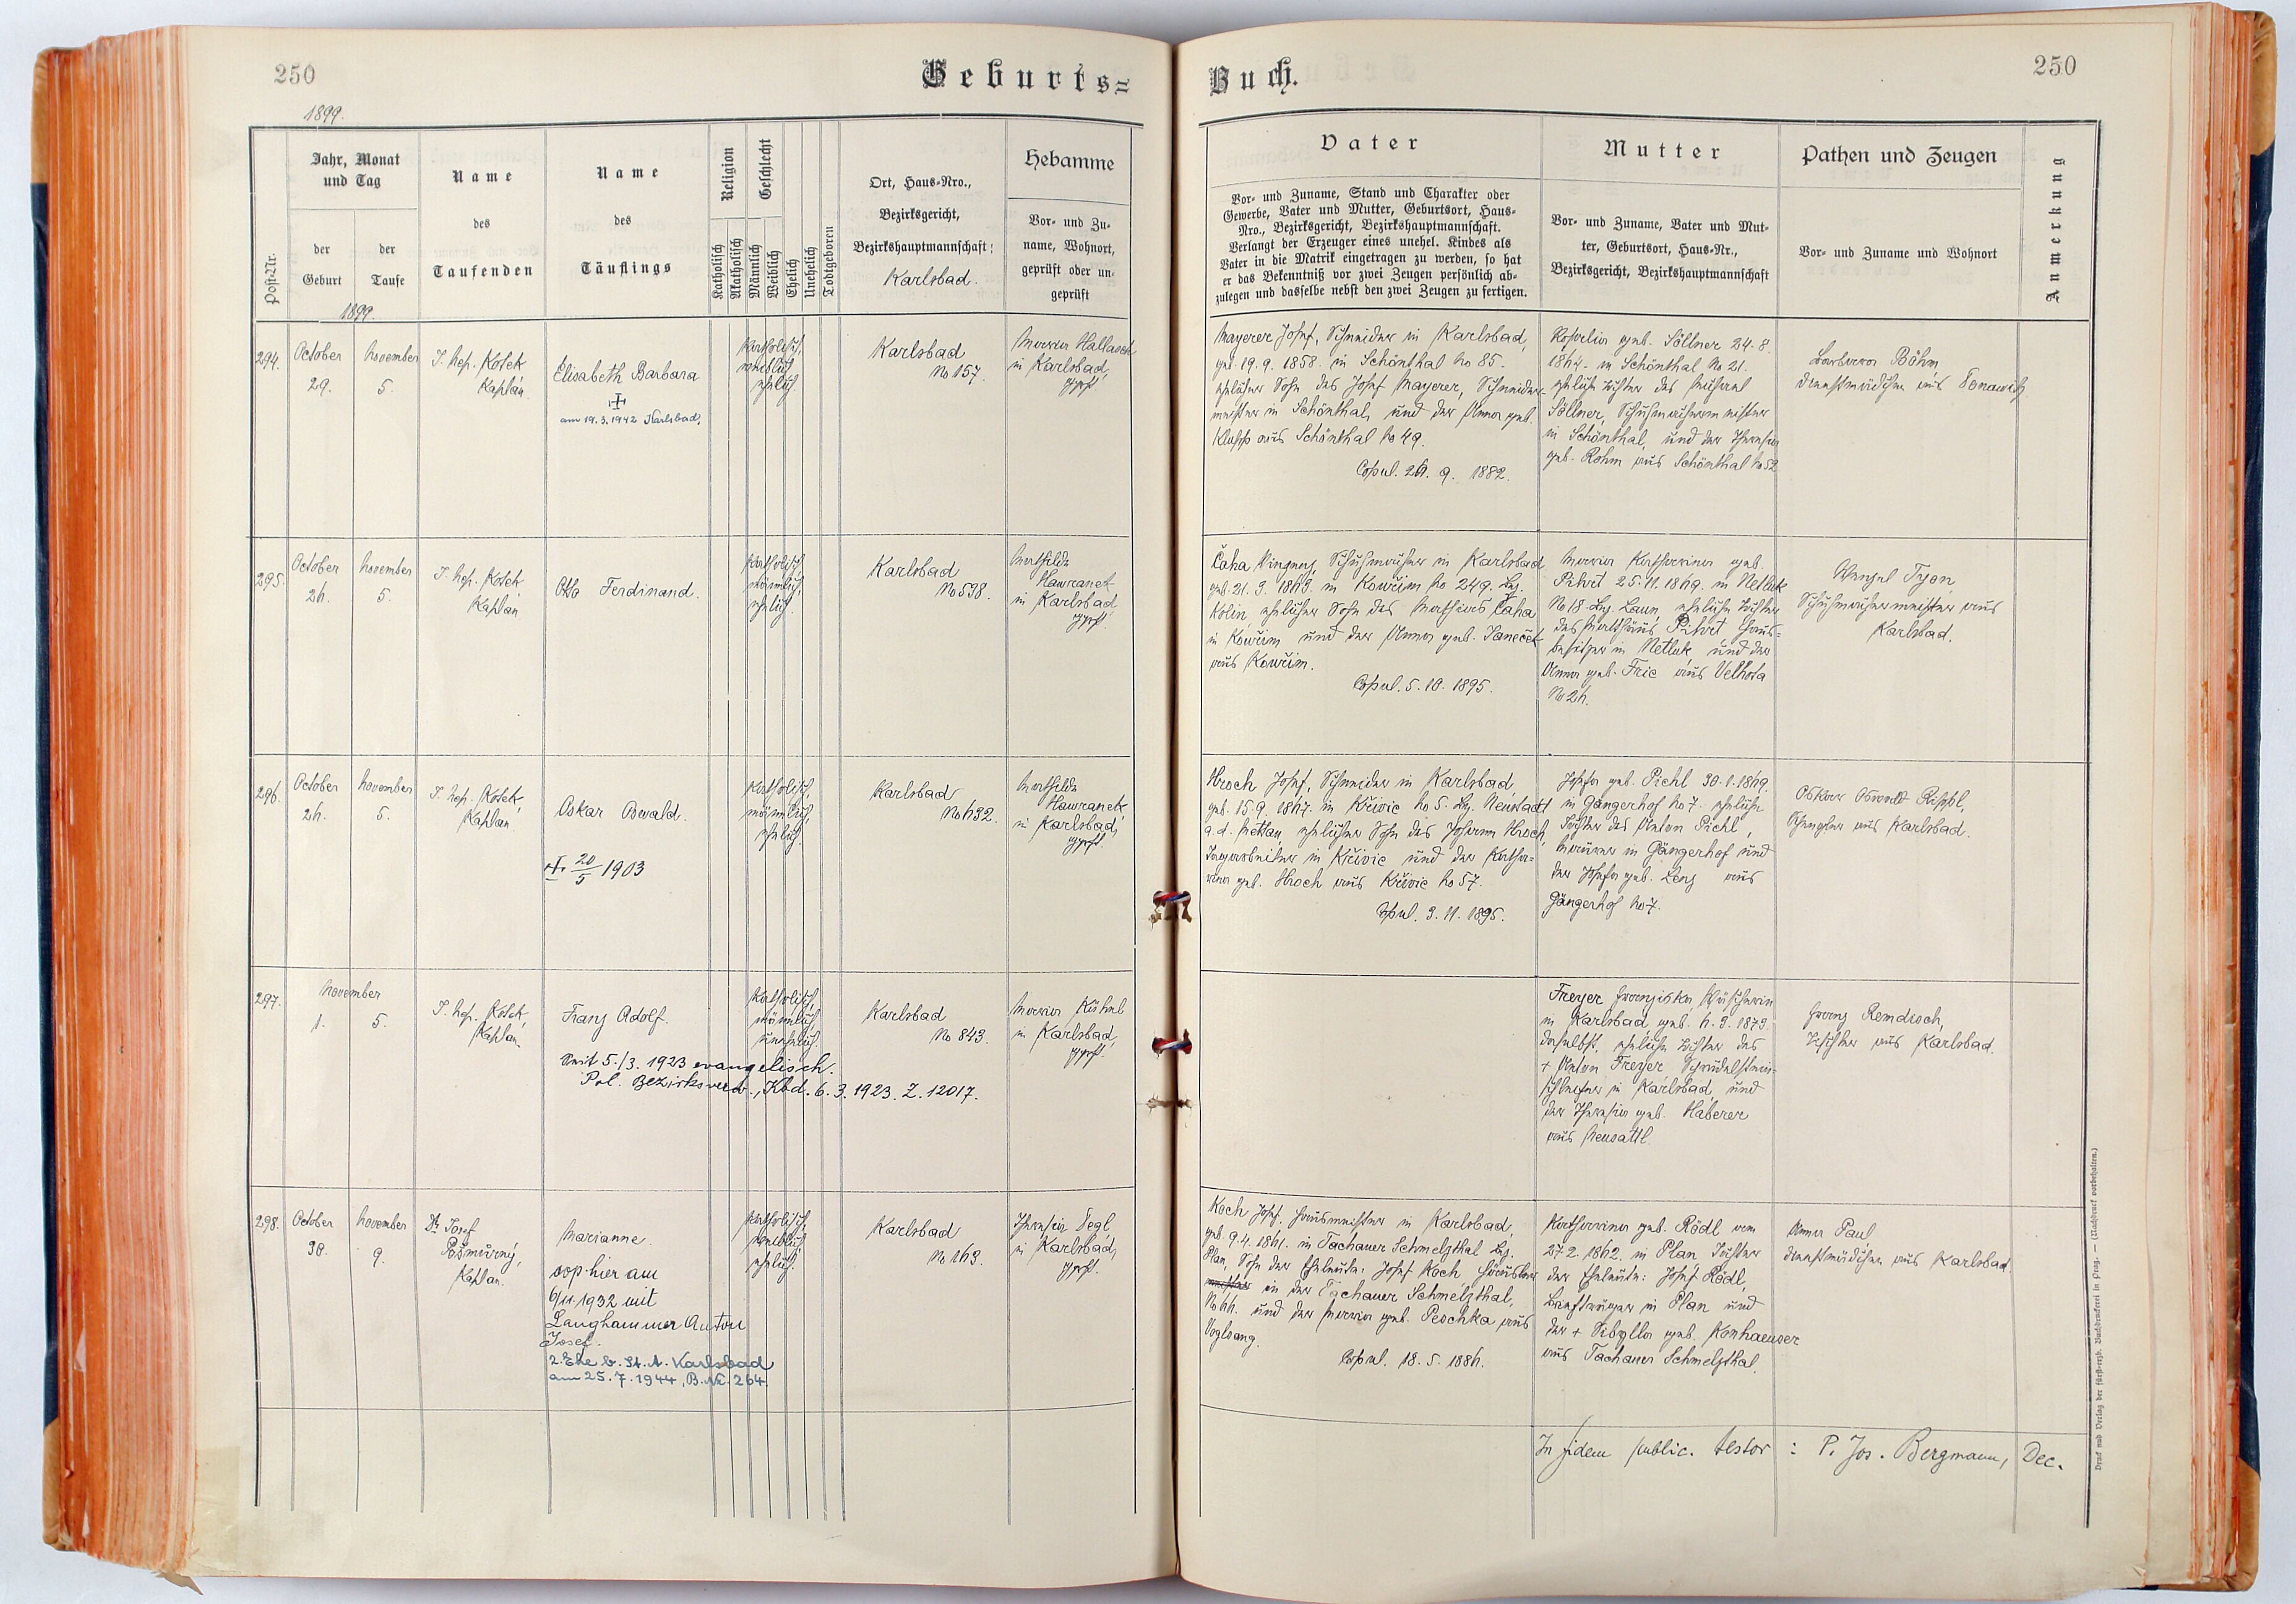 250
Geburts=
1899.
Post-Nr.
Jahr, Monat
und Tag
der
Geburt
der
Taufe
1899.
Name
des
Taufenden
Name
des
Täuflings
Religion
Katholisch
Akatholisch
Geschlecht
Männlich
Weiblich
Ehelich
Unehelich
Todtgeboren
Ort, Haus-Nro.,
Bezirksgericht,
Bezirkshauptmannschaft:
Karlsbad.
Hebamme
Vor- und Zu-
name, Wohnort,
geprüft oder un-
geprüft
294.
October
29.
November
5.
J. Nep. Kotek
Kaplan
Elisabeth Barbara
am 19.3.1942 Karlsbad,
Katholisch,
weiblich
ehelich
Karlsbad
No 157.
Maria Hallasch
in Karlsbad,
gepft.
295.
October
24.
November
5.
J. Nep. Kotek
Kaplan
Otto Ferdinand.
Katholisch
männlich,
ehelich.
Karlsbad
No 538.
Mathilde
Hawranek
in Karlsbad
gepft.
296.
October
24.
November
5.
J. Nep. Kotek,
Kaplan
Oskar Oswald.
20/5 1903
Katholisch,
männlich,
ehelich.
Karlsbad
No 432.
Mathilde
Hawranek
in Karlsbad,
gepft.
297.
November
1.
5.
J. Nep. Kotek,
Kaplan.
Franz Adolf.
Seit 5./3. 1923 evangelisch.
Pol. Bezirksverw., Kbd. 6.3.1923. Z. 12017.
Katholisch,
männlich
unehelich.
Karlsbad
No 843.
Maria Kühnl
in Karlsbad,
gepft.
298.
October
30.
November
9.
Dr Josef
Pošmurný,
Kaplan.
Marianne.
cop. hier am
6/11 1932 mit
Langhammer Anton
Josef.
2. Ehe b. St. A. Karlsbad
am 25.7.1944, B. Nr. 264.
Katholisch,
weiblich
ehelich.
Karlsbad
No 163.
Theresia Degl,
in Karlsbad,
gepft.
Buch.
250
Vater
Vor- und Zuname, Stand und Charakter oder
Gewerbe, Vater und Mutter, Geburtsort, Haus-
Nro., Bezirksgericht, Bezirkshauptmannschaft.
Verlangt der Erzeuger eines unehel. Kindes als
Vater in die Matrik eingetragen zu werden, so hat
er das Bekenntniß vor zwei Zeugen persönlich ab-
zulegen und dasselbe nebst den zwei Zeugen zu fertigen.
Mutter
Vor- und Zuname, Vater und Mut-
ter, Geburtsort, Haus-Nr.,
Bezirksgericht, Bezirkshauptmannschaft
Pathen und Zeugen
Vor- und Zuname und Wohnort
Anmerkung
Mayerer Josef, Schneider in Karlsbad,
geb. 19.9.1858. in Schönthal No 85.
ehelicher Sohn des Josef Mayerer, Schneider-
meister in Schönthal und der Anna geb.
aus Schönthal No 49.
Copul. 24. 9. 1882.
Rosalia geb. Söllner 24.8.
1864. in Schönthal No 21.
eheliche Tochter des Michael
Söllner, Schuhmachermeister
in Schönthal, und der Theresia
geb. Rohm aus Schönthal No 52
Barbara Böhm,
Dienstmädchen aus Donawitz
Čaha Vinzenz, Schuhmacher in Karlsbad
geb. 21.3.1863. in Kouřim No 249. Bez.
Kolin, ehelicher Sohn des Mathias Čaha
in Kouřim und der Anna geb. Janeček
aus Kouřim.
Copul. 5. 10. 1895.
Maria Katharina geb.
25.11.1869. in Netluk
No 18. Bez. Laun, eheliche Tochter
des Matthäus Haus-
besitzer in Netluk und der
Anna geb. Fric aus Velhota
No 24.
Wenzel Tyon,
Schuhmachermeister aus
Karlsbad.
Hroch Josef, Schneider in Karlsbad,
geb. 15.9.1867. in Křivic No 5. Bez. Neustadt
a.d. Mettau, ehelicher Sohn des Johann Hroch,
Tagarbeiter in Křivic und der Katha-
rina geb. Hroch aus Křivic No 57.
Copul. 3. 11. 1895.
Josefa geb. Pichl 30.1.1869.
in Gängerhof No 7. eheliche
Tochter des Anton Pichl,
Maurer in Gängerhof und
der Josefa geb. Lenz aus
Gängerhof No 7.
Oskar Oswald Rippl,
Spengler aus Karlsbad.
Freyer Franziska Wäscherin
in Karlsbad, geb. 4.3.1873.
daselbst, eheliche Tochter des
+ Anton Freyer Sprudelstein-
schleifer in Karlsbad, und
der Theresia geb. Haberer
aus Neusattl.
Franz Remdisch,
Tischler aus Karlsbad.
Koch Josef, Hausmeister in Karlsbad,
geb. 9.4.1861. in Tachauer Schmelzthal Bez.
Plan, Sohn der Eheleute: Josef Koch Häusler
in der Tachauer Schmelzthal,
No 44. und der Maria geb. Peschka aus
Voglsang.
Copul. 18. 5. 1884.
Katharina geb. Rödl am
27.2.1862. in Plan Tochter
der Eheleute: Josef Rödl,
in Plan und
der + Sibylla geb. Konhaeuser
aus Tachauer Schmelzthal.
Anna Paul,
Dienstmädchen aus Karlsbad.
In fidem public. testor: P. Jos. Bergmann, Dec.
Druck und Verlag der fürst-erzb. Buchdruckerei in Prag. — (Nachdruck vorbehalten.)